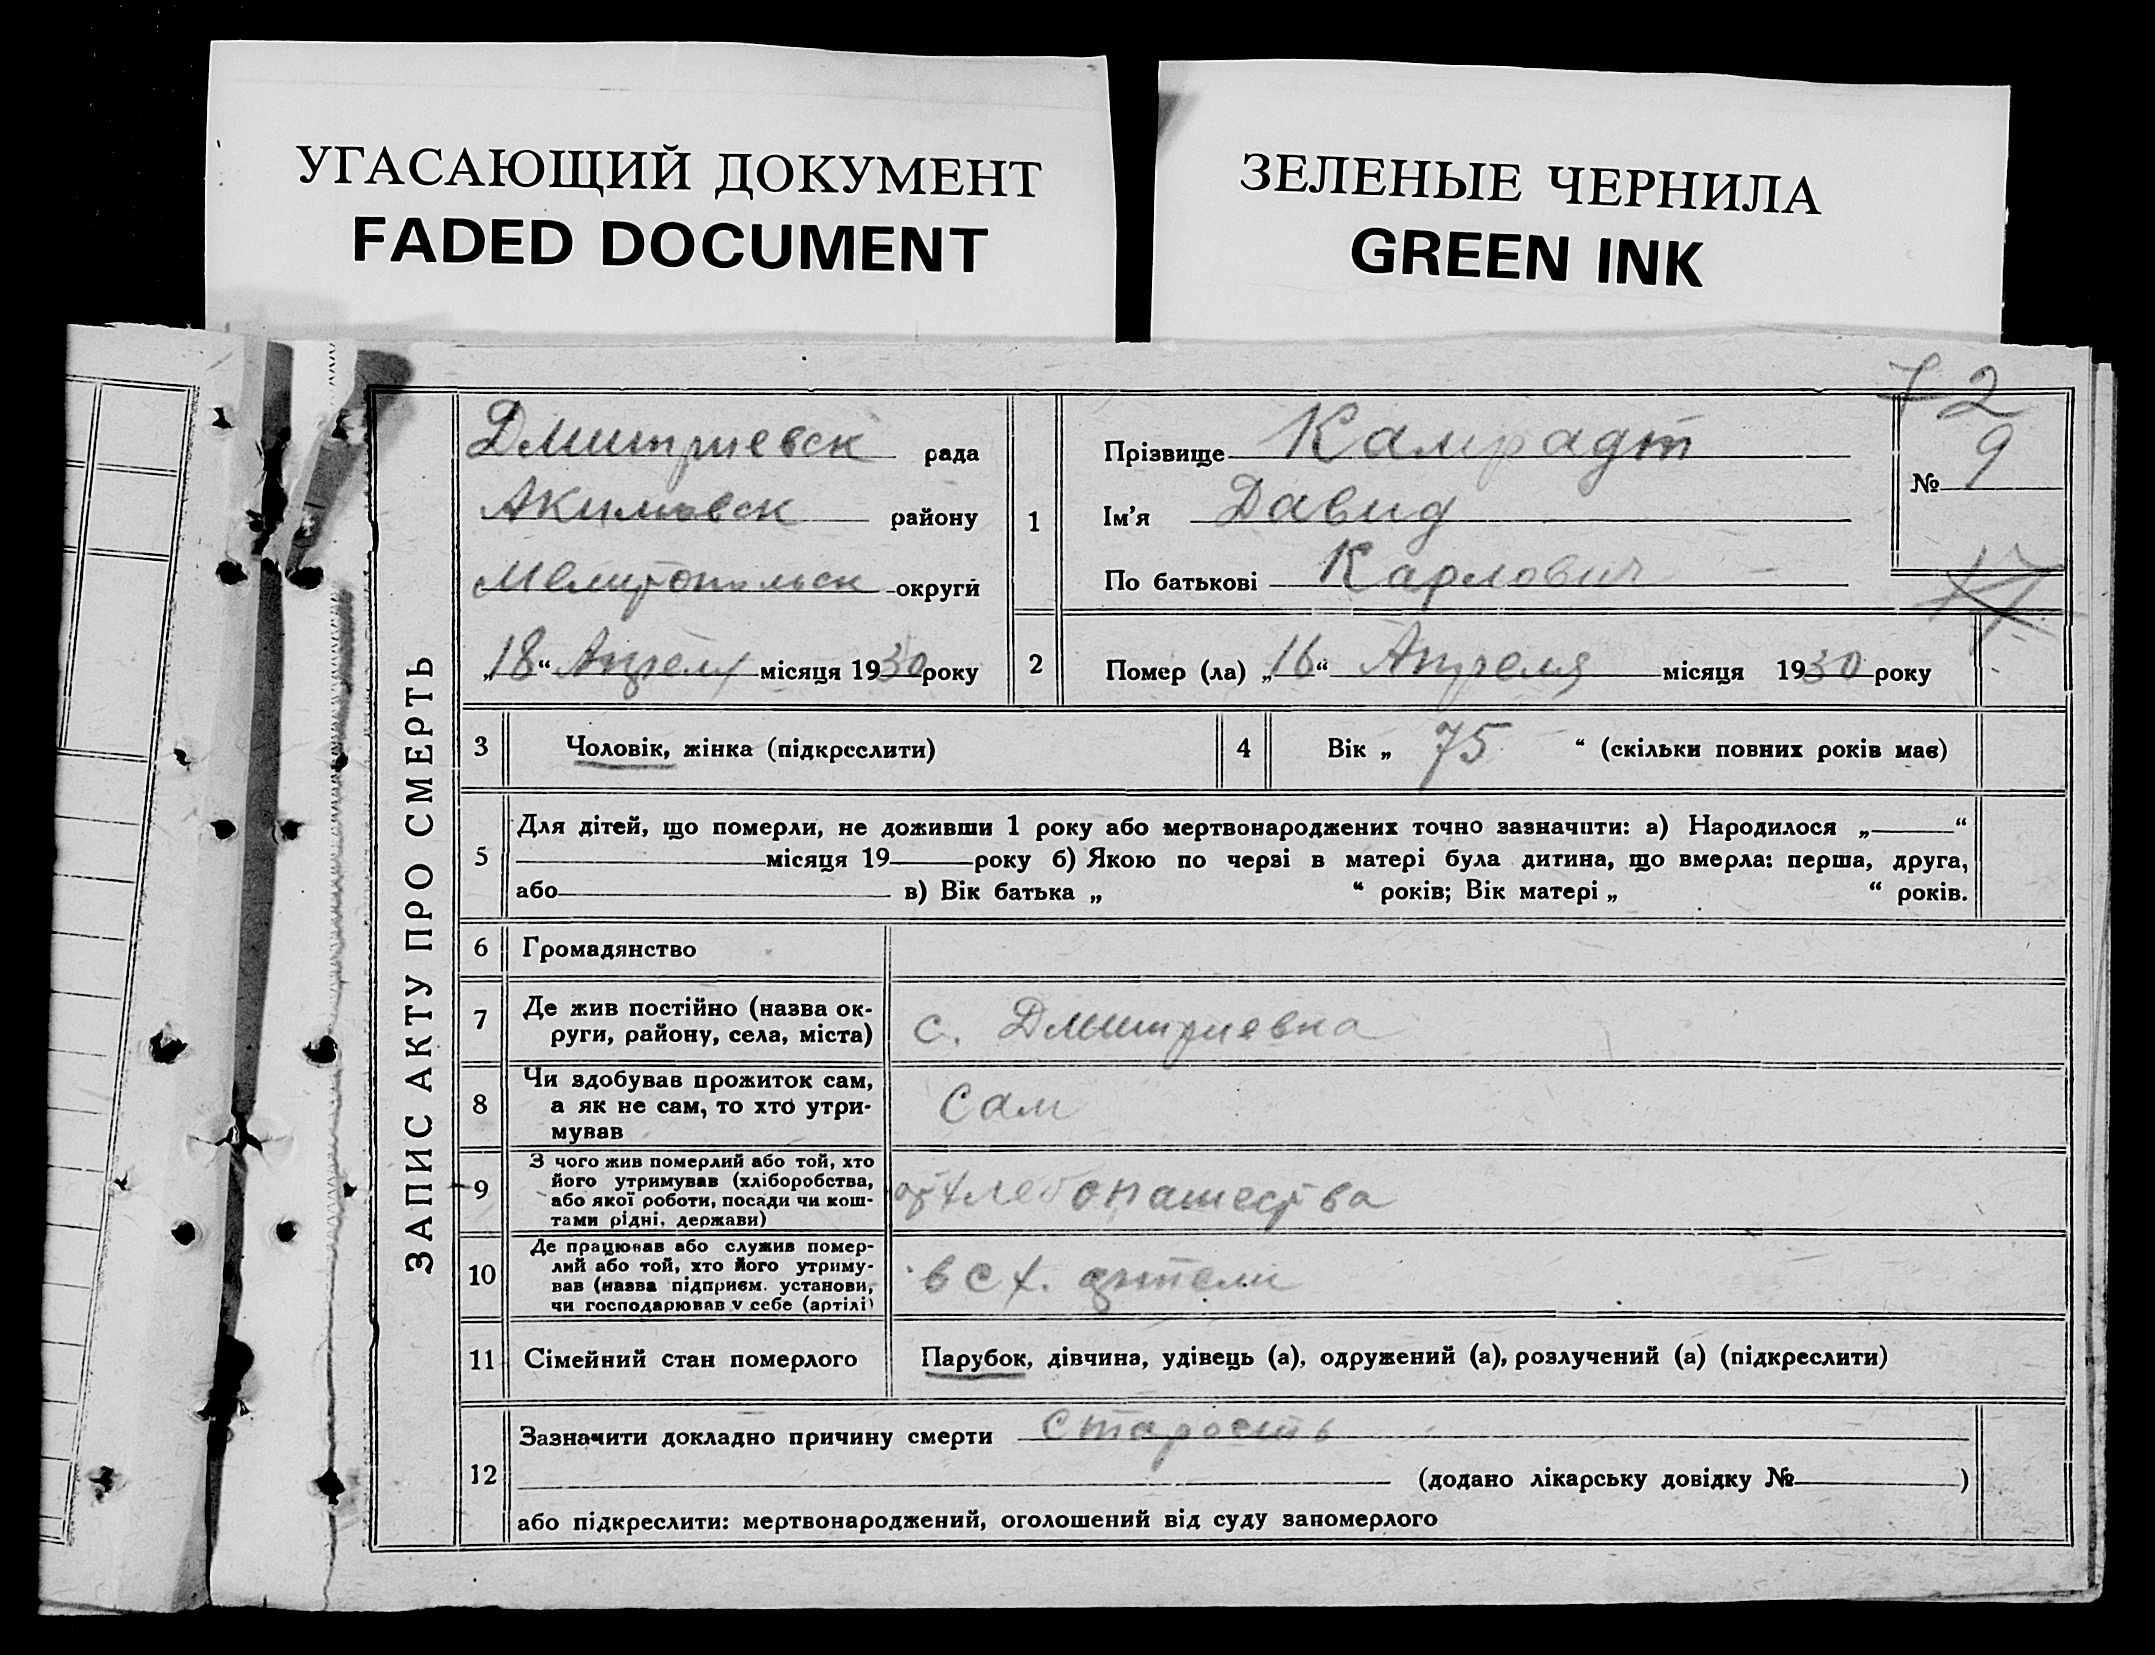 УГАСАЮЩИЙ ДОКУМЕНТ
FADED DOCUMENT
ЗЕЛЕНЫЕ ЧЕРНИЛА
GREEN INK
72
ЗАПИС АКТУ ПРО СМЕРТЬ
Дмитриевск рада
Акимовск району
Мелитопольск округи
„18“ Апреля місяця 1930 року
1
Прізвище Камрадт
Ім'я Давид
По батькові Карлович
№ 9
17
2 Помер (ла) „16“ Апреля місяця 1930 року
3 Чоловік, жінка (підкреслити)
4 Вік „ 75 “ (скільки повних років має)
5
Для дітей, що померли, не доживши 1 року або мертвонароджених точно зазначити: а) Народилося „ “
місяця 19 року б) Якою по черзі в матері була дитина, що вмерла: перша, друга,
або в) Вік батька „ “ років; Вік матері „ “ років.
6 Громадянство
7 Де жив постійно (назва ок-
руги, району, села, міста)
с. Дмитриевка
8 Чи здобував прожиток сам,
а як не сам, то хто утри-
мував
Сам
9 З чого жив померлий або той, хто
його утримував (хліборобства,
або якої роботи, посади чи кош-
тами рідні, держави)
от хлебопашества
10 Де працював або служив помер-
лий або той, хто його утриму-
вав (назва підприєм. установи,
чи господарював у себе (артілі)
в с х. артели
11 Сімейний стан померлого
Парубок, дівчина, удівець (а), одружений (а), розлучений (а) (підкреслити)
12
Зазначити докладно причину смерти старость
(додано лікарську довідку № )
або підкреслити: мертвонароджений, оголошений від суду запомерлого